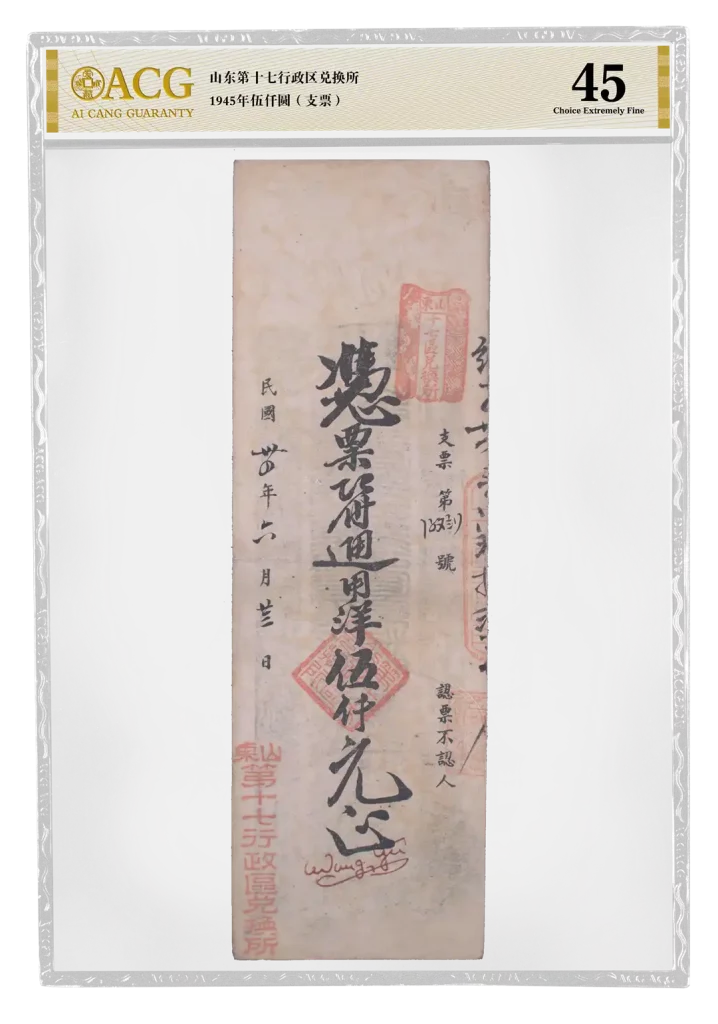 ACG
AI CANG GUARANTY
山东第十七行政区兑换所
1945年伍仟圆（支票）
45
Choice Extremely Fine
山東
十七區兌換所
支票 第
號
認票不認人
憑票符通用洋伍仟元
民國卅四年六月廿三日
山東第十七行政區兌換所
ACG ACG